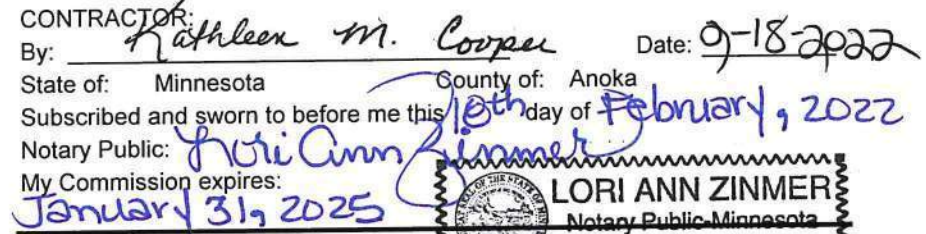 CONTRACTOR:
By: Kathleen M. Cooper Date: 9-18-2022
State of: Minnesota County of: Anoka
Subscribed and sworn to before me this 18th day of February, 2022
Notary Public: Lori Ann Zinmer
My Commission expires:
January 31, 2025
LORI ANN ZINMER
Notary Public-Minnesota